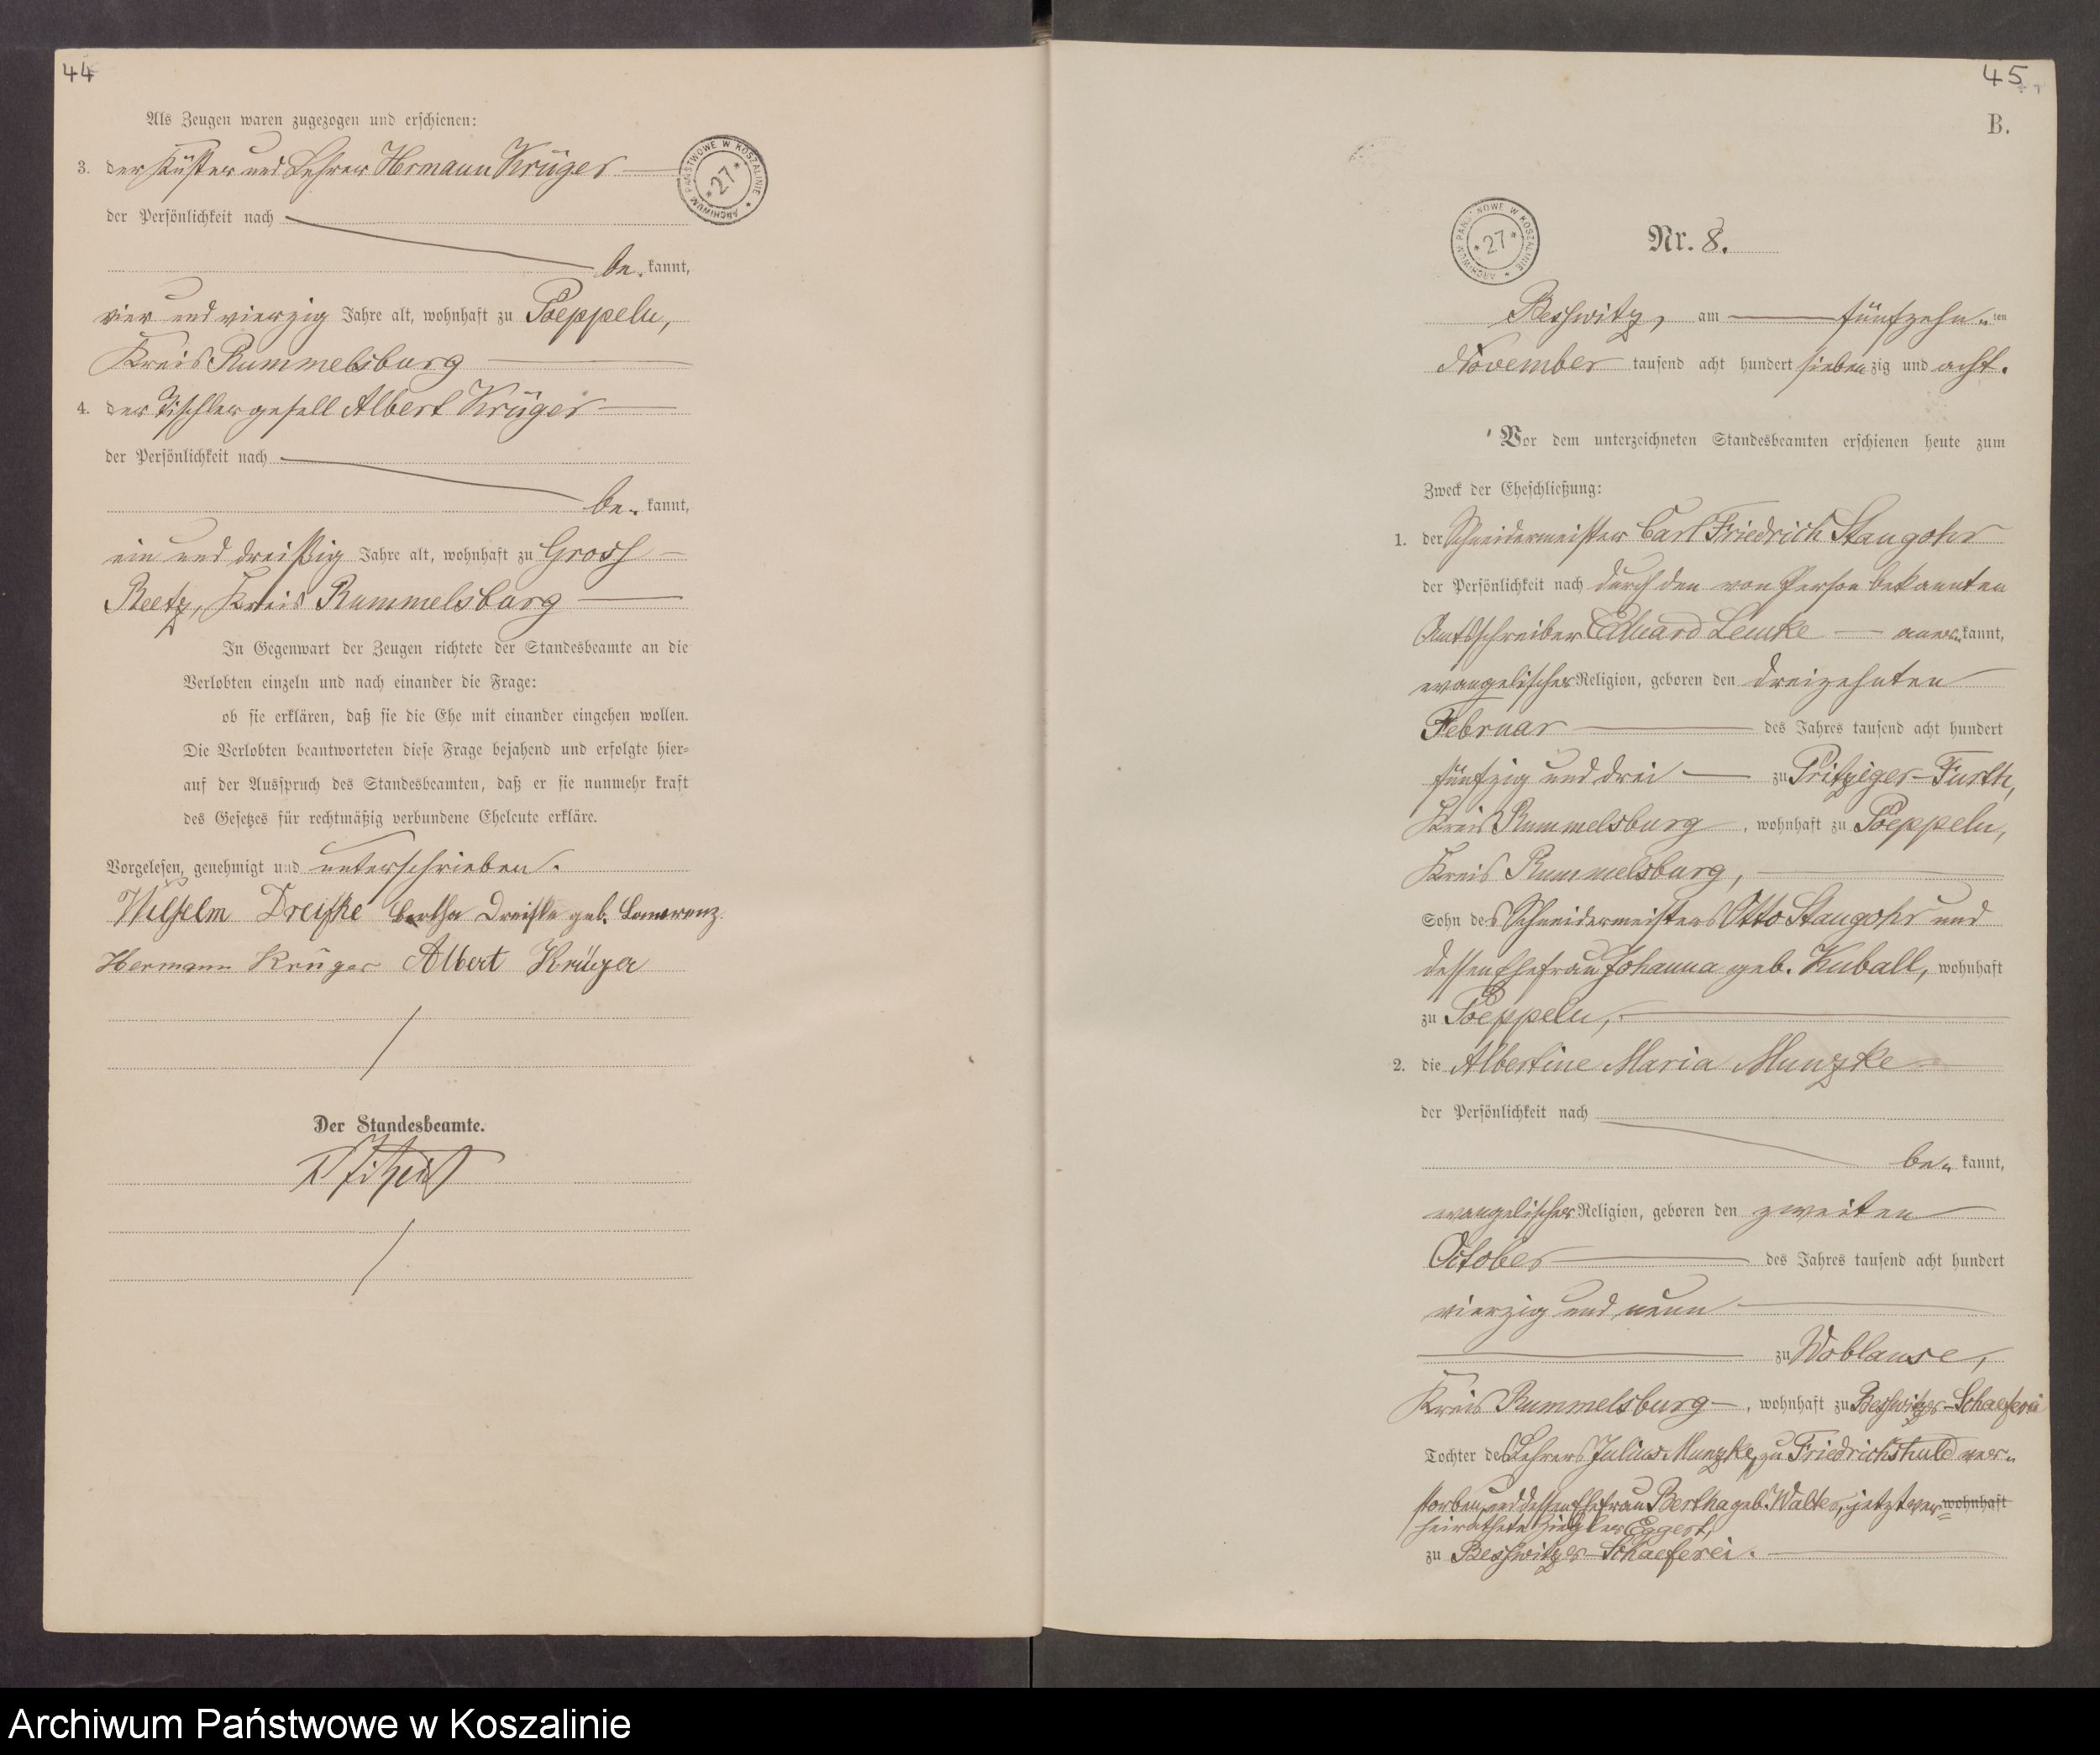 44
Als Zeugen waren zugezogen und erschienen:
3. der Küster und Lehrer Hermann Krüger
der Persönlichkeit nach
be- kannt,
vier und vierzig Jahre alt, wohnhaft zu Poeppeln,
Kreis Rummelsburg
4. der Tischlergesell Albert Krüger
der Persönlichkeit nach
be- kannt,
ein und dreißig Jahre alt, wohnhaft zu Gross
Reetz, Kreis Rummelsburg
In Gegenwart der Zeugen richtete der Standesbeamte an die
Verlobten einzeln und nach einander die Frage:
ob sie erklären, daß sie die Ehe mit einander eingehen wollen.
Die Verlobten beantworteten diese Frage bejahend und erfolgte hier-
auf der Ausspruch des Standesbeamten, daß er sie nunmehr kraft
des Gesetzes für rechtmäßig verbundene Eheleute erkläre.
Vorgelesen, genehmigt und unterschrieben.
Wilhelm Dreifke Bertha Dreifke geb. Lamerenz
Hermann Krüger Albert Krüger
Der Standesbeamte.
ARCHIWUM PAŃSTWOWE W KOSZALINIE * 27 *
45
B.
ARCHIWUM PAŃSTWOWE W KOSZALINIE * 27 *
Nr. 8.
Beßwitz, am fünfzehn ten
November tausend acht hundert siebenzig und acht.
Vor dem unterzeichneten Standesbeamten erschienen heute zum
Zweck der Eheschließung:
1. der Schneidermeister Carl Friedrich Staugohr
der Persönlichkeit nach durch den von Person bekannten
Amtsschreiber Eduard Lemke anerkannt,
evangelischer Religion, geboren den dreizehnten
Februar des Jahres tausend acht hundert
fünfzig und drei zu Pritziger-Furth,
Kreis Rummelsburg, wohnhaft zu Poeppeln,
Kreis Rummelsburg,
Sohn des Schneidermeisters Otto Staugohr und
dessen Ehefrau Johanna geb. Kuball, wohnhaft
zu Poeppeln,
2. die Albertine Maria Munzke
der Persönlichkeit nach
be- kannt,
evangelischer Religion, geboren den zweiten
October des Jahres tausend acht hundert
vierzig und neun
zu Woblanse,
Kreis Rummelsburg, wohnhaft zu Beßwitzer-Schaeferei
Tochter des Lehrers Julius Munzke, zu Friedrichshuld ver-
storben, und dessen Ehefrau Bertha geb. Walter, jetzt ver- wohnhaft
heirathete Eggert,
zu Beßwitzer-Schaeferei.
Archiwum Państwowe w Koszalinie